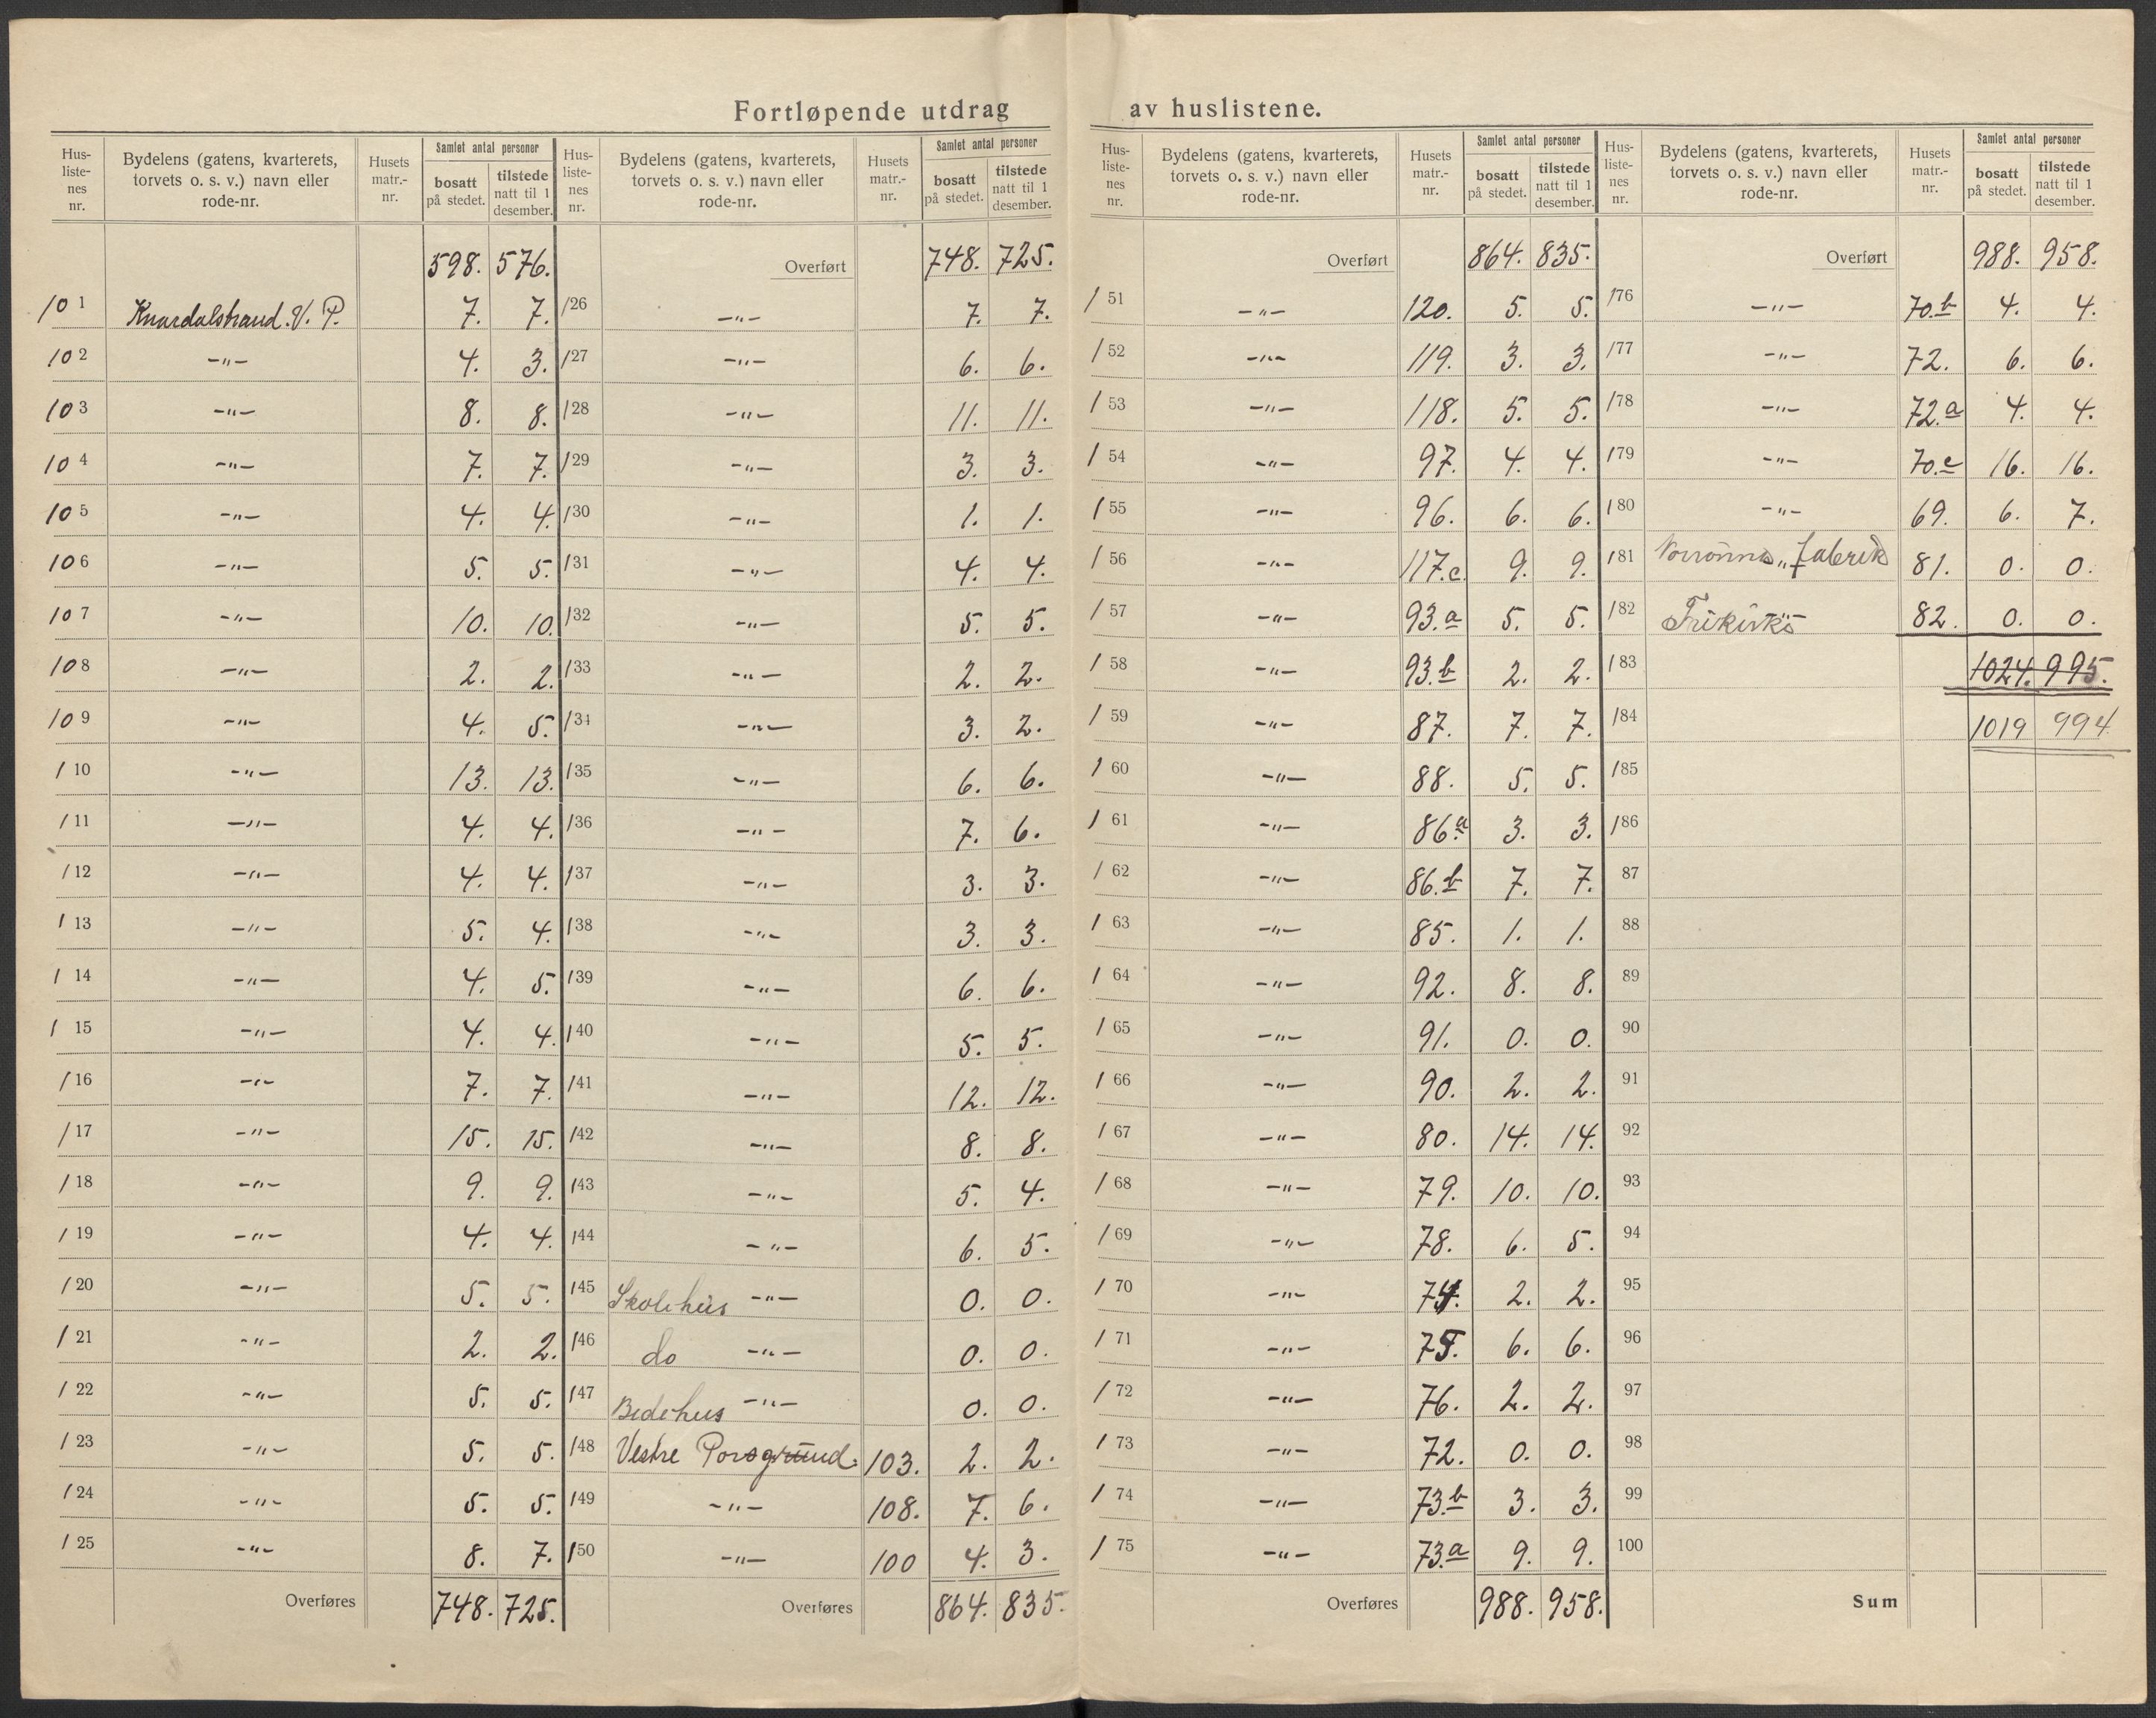 Fortløpende utdrag av huslistene.
Hus-listenes nr. Bydelens (gatens, kvarterets, torvets o. s. v.) navn eller rode-nr. Husets matr.-nr. Samlet antal personer bosatt på stedet. tilstede natt til 1 desember.
598. 576.
101 Knardalstrand. V. P. 7. 7.
102 -"- 4. 3.
103 -"- 8. 8.
104 -"- 7. 7.
105 -"- 4. 4.
106 -"- 5. 5.
107 -"- 10. 10.
108 -"- 2. 2.
109 -"- 4. 5.
110 -"- 13. 13.
111 -"- 4. 4.
112 -"- 4. 4.
113 -"- 5. 4.
114 -"- 4. 5.
115 -"- 4. 4.
116 -"- 7. 7.
117 -"- 15. 15.
118 -"- 9. 9.
119 -"- 4. 4.
120 -"- 5. 5.
121 -"- 2. 2.
122 -"- 5. 5.
123 -"- 5. 5.
124 -"- 5. 5.
125 -"- 8. 7.
Overføres 748. 725.
Hus-listenes nr. Bydelens (gatens, kvarterets, torvets o. s. v.) navn eller rode-nr. Husets matr.-nr. Samlet antal personer bosatt på stedet. tilstede natt til 1 desember.
Overført 748. 725.
126 -"- 7. 7.
127 -"- 6. 6.
128 -"- 11. 11.
129 -"- 3. 3.
130 -"- 1. 1.
131 -"- 4. 4.
132 -"- 5. 5.
133 -"- 2. 2.
134 -"- 3. 2.
135 -"- 6. 6.
136 -"- 7. 6.
137 -"- 3. 3.
138 -"- 3. 3.
139 -"- 6. 6.
140 -"- 5. 5.
141 -"- 12. 12.
142 -"- 8. 8.
143 -"- 5. 4.
144 -"- 6. 5.
145 Skolehus -"- 0. 0.
146 do -"- 0. 0.
147 Bedehus -"- 0. 0.
148 Vestre Porsgrund. 103. 2. 2.
149 -"- 108. 7. 6.
150 -"- 100 4. 3.
Overføres 864. 835.
Hus-listenes nr. Bydelens (gatens, kvarterets, torvets o. s. v.) navn eller rode-nr. Husets matr.-nr. Samlet antal personer bosatt på stedet. tilstede natt til 1 desember.
Overført 864. 835.
151 -"- 120. 5. 5.
152 -"- 119. 3. 3.
153 -"- 118. 5. 5.
154 -"- 97. 4. 4.
155 -"- 96. 6. 6.
156 -"- 117.c. 9. 9.
157 -"- 93.a 5. 5.
158 -"- 93.b 2. 2.
159 -"- 87. 7. 7.
160 -"- 88. 5. 5.
161 -"- 86.a 3. 3.
162 -"- 86.b 7. 7.
163 -"- 85. 1. 1.
164 -"- 92. 8. 8.
165 -"- 91. 0. 0.
166 -"- 90. 2. 2.
167 -"- 80. 14. 14.
168 -"- 79. 10. 10.
169 -"- 78. 6. 5.
170 -"- 74. 2. 2.
171 -"- 75. 6. 6.
172 -"- 76. 2. 2.
173 -"- 72. 0. 0.
174 -"- 73.b 3. 3.
175 -"- 73.a 9. 9.
Overføres 988. 958.
Hus-listenes nr. Bydelens (gatens, kvarterets, torvets o. s. v.) navn eller rode-nr. Husets matr.-nr. Samlet antal personer bosatt på stedet. tilstede natt til 1 desember.
Overført 988. 958.
176 -"- 70.b 4. 4.
177 -"- 72. 6. 6.
178 -"- 72.a 4. 4.
179 -"- 70.c 16. 16.
180 -"- 69. 6. 7.
181 fabrik 81. 0. 0.
182 82. 0. 0.
183 1024. 995.
184 1019 994
185
186
87
88
89
90
91
92
93
94
95
96
97
98
99
100
Sum